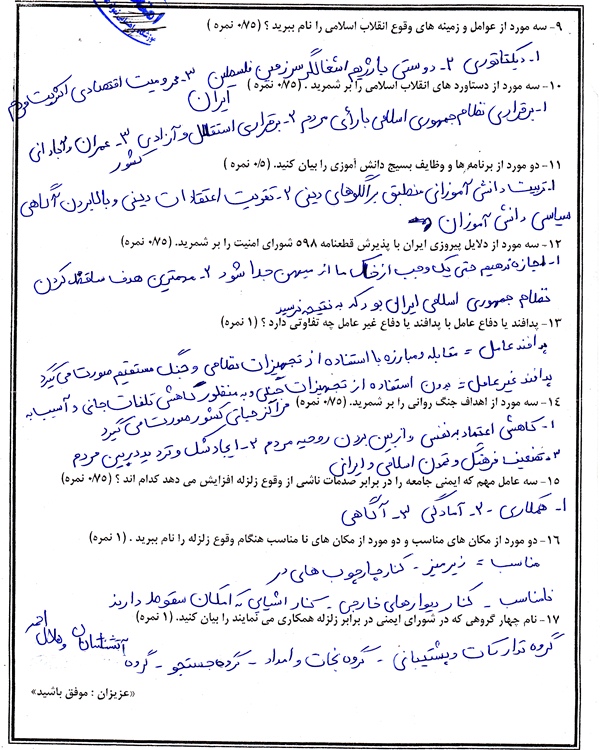 ۹- سه مورد از عوامل و زمینه های وقوع انقلاب اسلامی را نام ببرید ؟ (۰/۷۵ نمره )
۱- دیکتاتوری ۲- دوستی با رژیم اشغالگر سرزمین فلسطین ۳- محرومیت اقتصادی اکثریت مردم ایران
۱۰- سه مورد از دستاورد های انقلاب اسلامی را بر شمرید . (۰/۷۵ نمره )
۱- برقراری نظام جمهوری اسلامی با رأی مردم ۲- برقراری استقلال و آزادی ۳- عمران و آبادانی کشور
۱۱- دو مورد از برنامه ها و وظایف بسیج دانش آموزی را بیان کنید. (۰/۵ نمره)
۱- تربیت دانش آموزانی منطبق بر الگوهای دینی ۲- تقویت اعتقادات دینی و بالا بردن آگاهی
سیاسی دانش آموزان
۱۲- سه مورد از دلایل پیروزی ایران با پذیرش قطعنامه ۵۹۸ شورای امنیت را بر شمرید. (۰/۷۵ نمره)
۱- اجازه ندهیم حتی یک وجب از خاک ما از میهن جدا شود ۲- مهمترین هدف ساقط کردن
نظام جمهوری اسلامی ایران بود که به نتیجه نرسید
۱۳- پدافند یا دفاع عامل با پدافند یا دفاع غیر عامل چه تفاوتی دارد ؟ (۱ نمره)
پدافند عامل = مقابله و مبارزه با استفاده از تجهیزات نظامی و جنگ مستقیم صورت می گیرد
پدافند غیر عامل = بدون استفاده از تجهیزات جنگی و به منظور کاهش تلفات جانی و آسیب به
مراکز حیاتی کشور صورت می گیرد
۱۴- سه مورد از اهداف جنگ روانی را بر شمرید. (۰/۷۵ نمره)
۱- کاهش اعتماد به نفس و از بین بردن روحیه مردم ۲- ایجاد شک و تردید در بین مردم
۳- تضعیف فرهنگ و تمدن اسلامی و ایرانی
۱۵- سه عامل مهم که ایمنی جامعه را در برابر صدمات ناشی از وقوع زلزله افزایش می دهد کدام اند ؟ (۰/۷۵ نمره)
۱- همکاری - ۲- آمادگی ۳- آگاهی
۱۶- دو مورد از مکان های مناسب و دو مورد از مکان های نا مناسب هنگام وقوع زلزله را نام ببرید . (۱ نمره)
مناسب = زیر میز - کنار چارچوب های در
نامناسب - کنار دیوارهای خارجی - کنار اشیایی که امکان سقوط دارند
۱۷- نام چهار گروهی که در شورای ایمنی در برابر زلزله همکاری می نمایند را بیان کنید. (۱ نمره)
گروه تدارکات و پشتیبانی - گروه نجات و امداد - گروه جستجو - گروه آتشنشانان و هلال احمر
«عزیزان : موفق باشید»